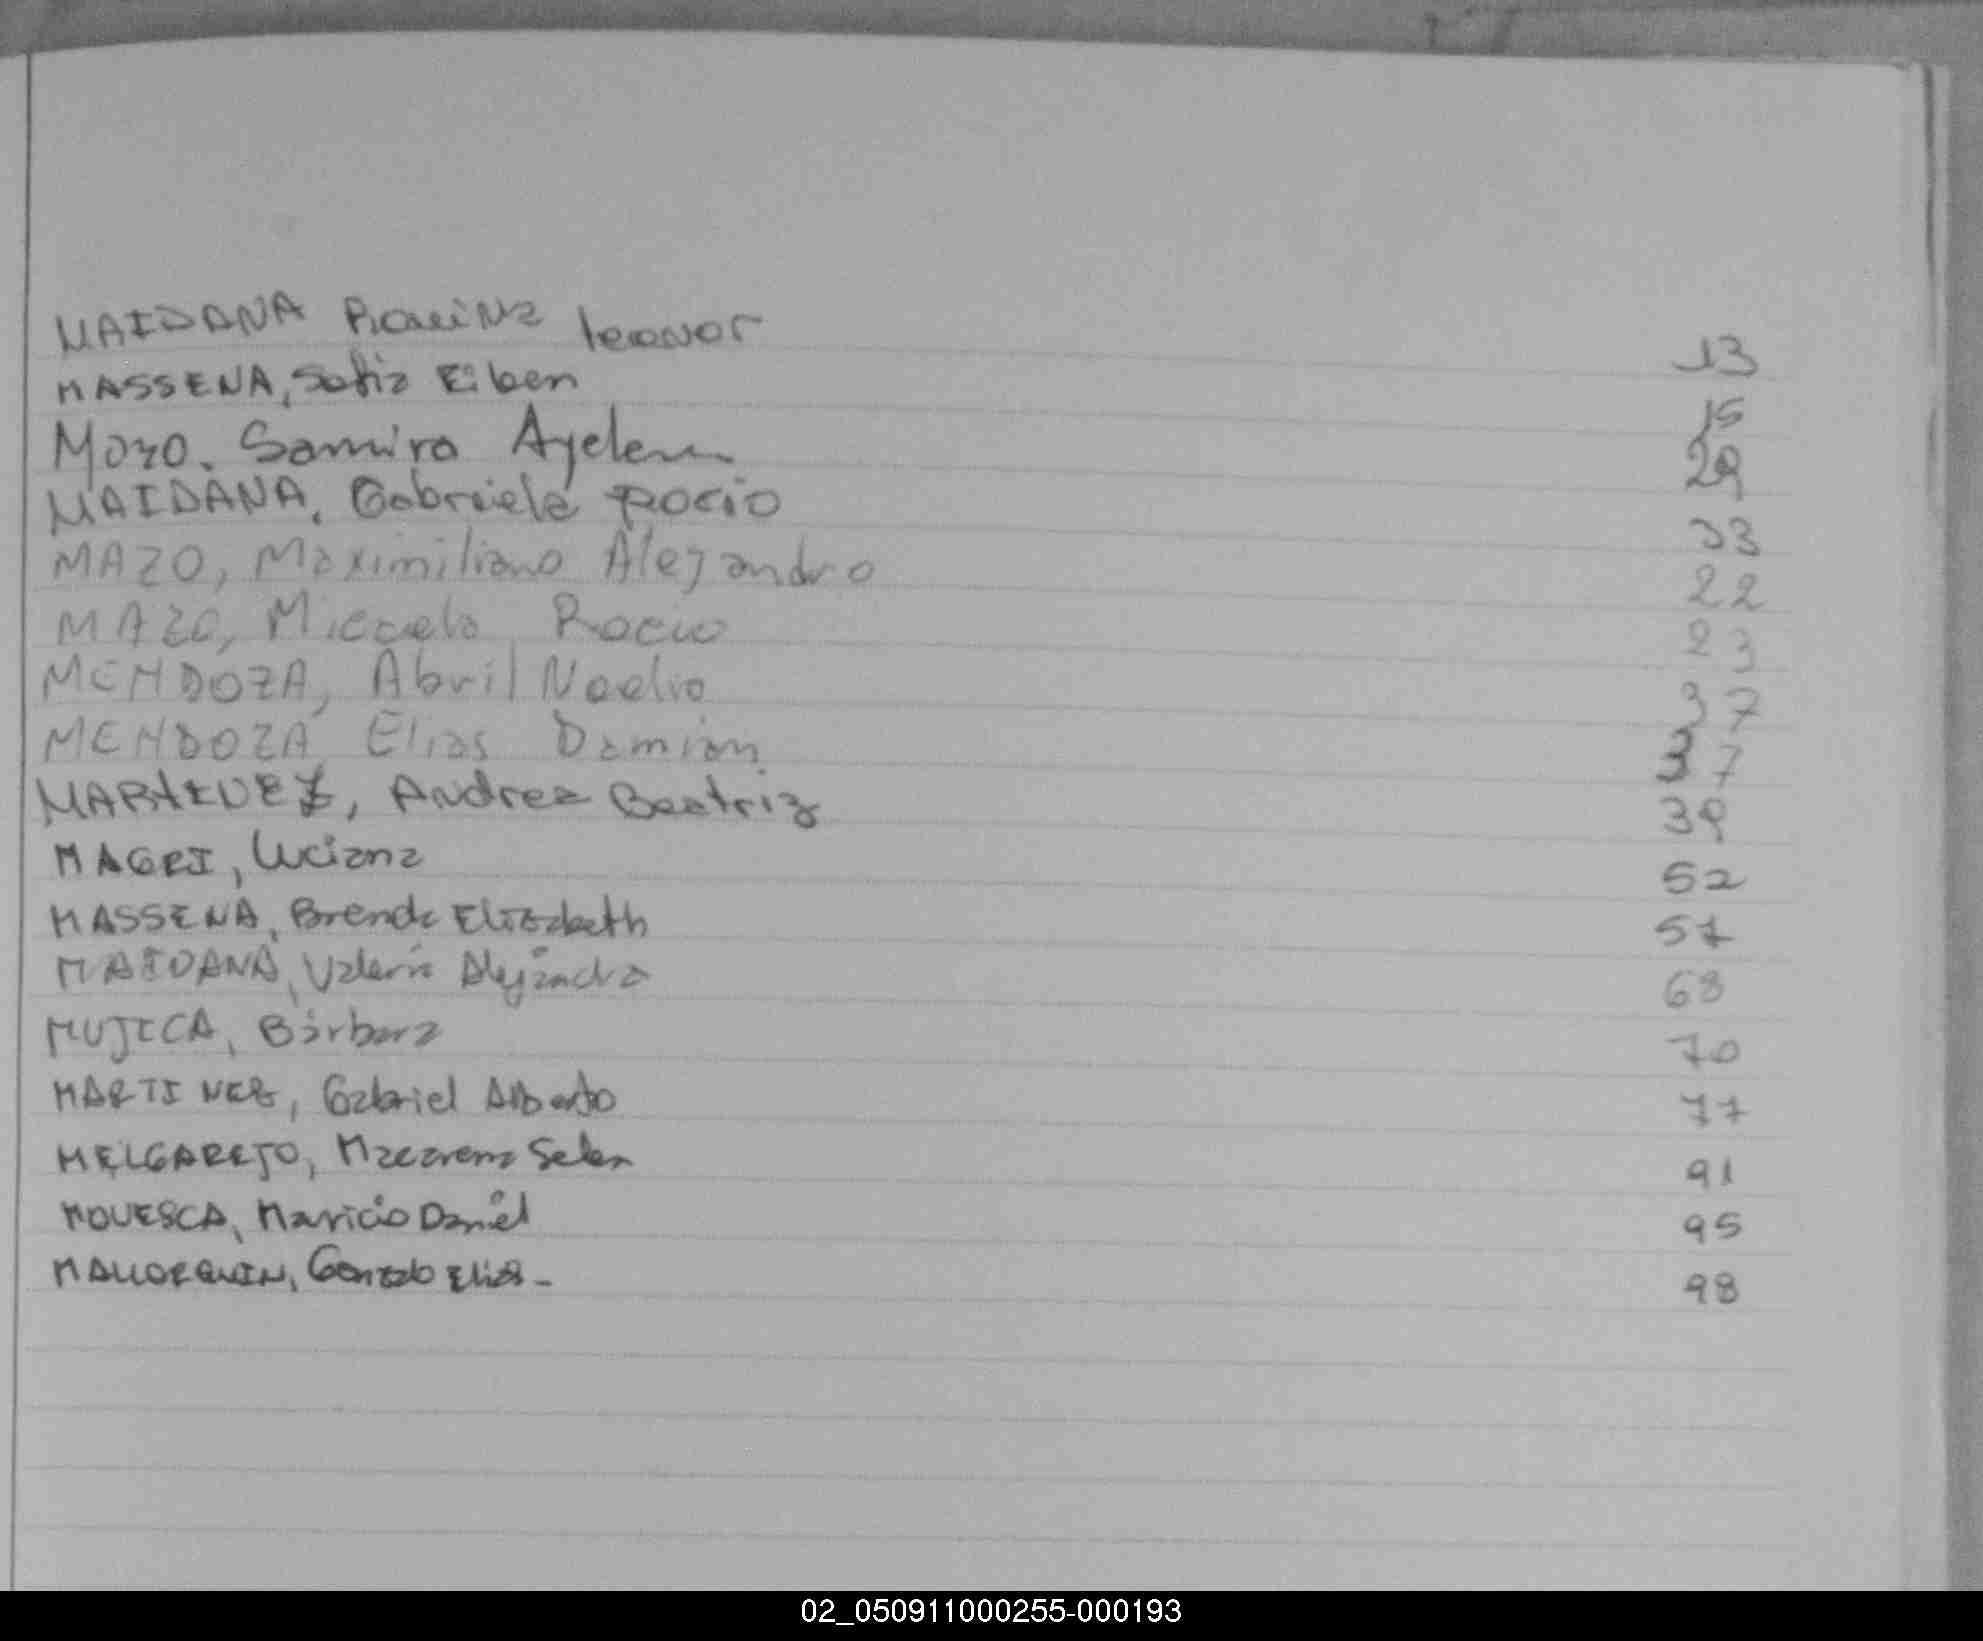 MAIDANA Roxina leonor 13
MASSENA, Sofia Eiben 15
Mozo. Samira Ayelem 29
MAIDANA, Gabriela Rocio 33
MAZO, Maximiliano Alejandro 22
MAZO, Micaela Rocio 23
MENDOZA, Abril Noelia 37
MENDOZA Elias Damian 37
MARTINEZ, Andrea Beatriz 39
MAGRI, Luciana 52
MASSENA, Brenda Elizabeth 57
MAIDANA, Valeria Alejandra 68
MUJICA, Bárbara 70
MARTINEZ, Gabriel Alberto 77
MELGAREJO, Macarena Selen 91
MOVESCA, Mauricio Daniel 95
MALLORQUIN, Gonzalo Elias- 98
02_050911000255-000193